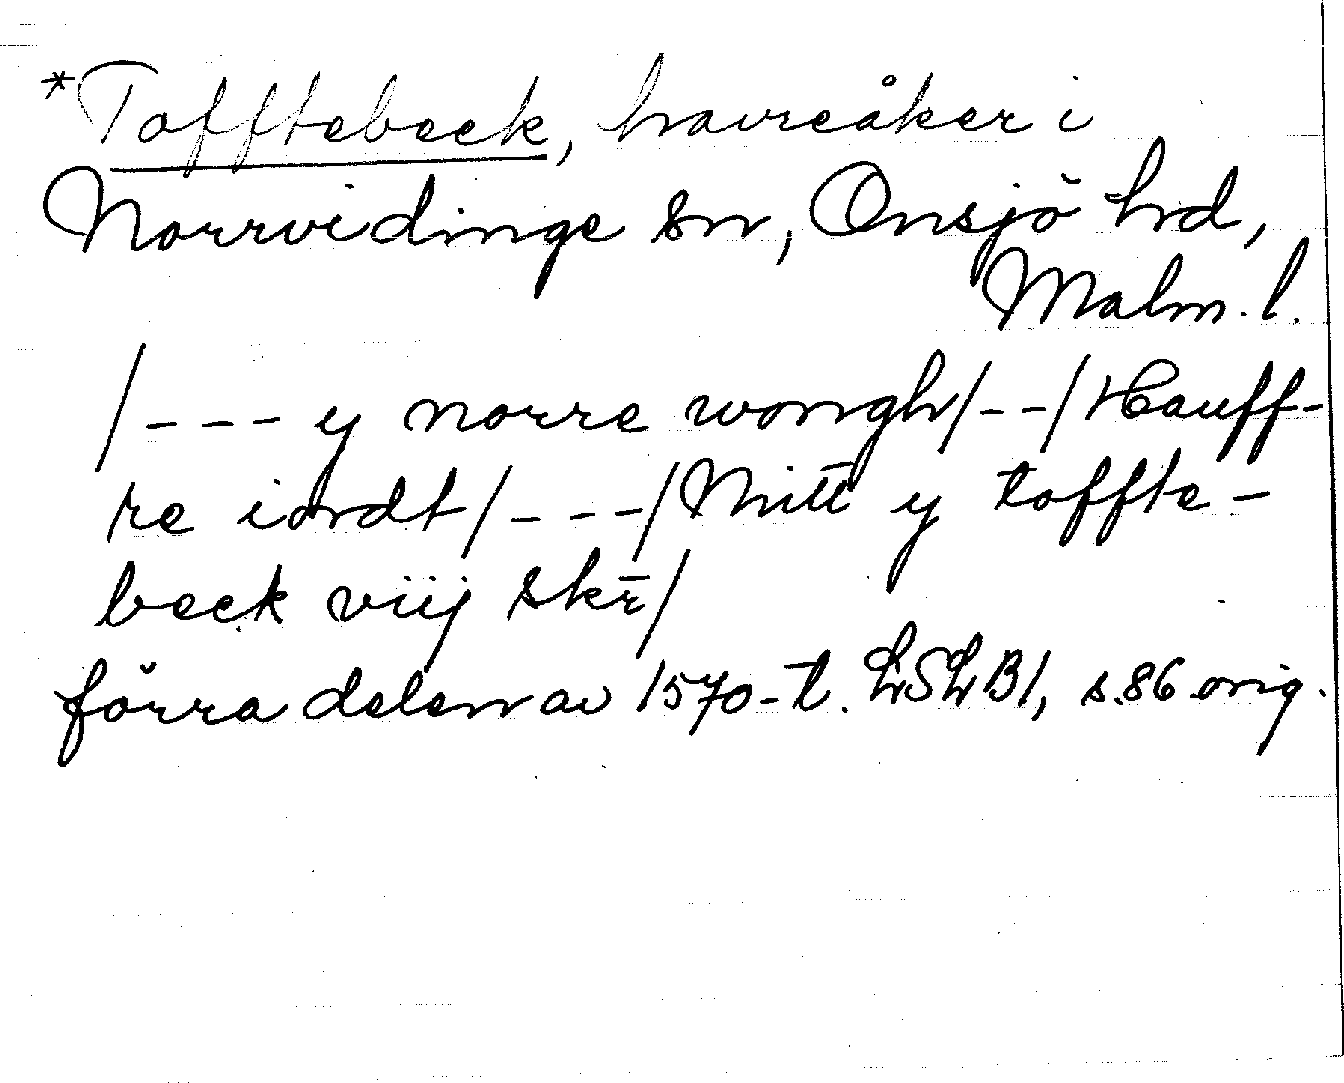 *Tofftebeck, havreåker i
Norrvidinge sn, Onsjö hrd,
Malm. l.
/--- y norre wongh/--/Hauff-
re iordt/---/Mitt y toffte-
beck viij skr̄/
förra delen av 1570-t. LSLB1, s.86 orig.